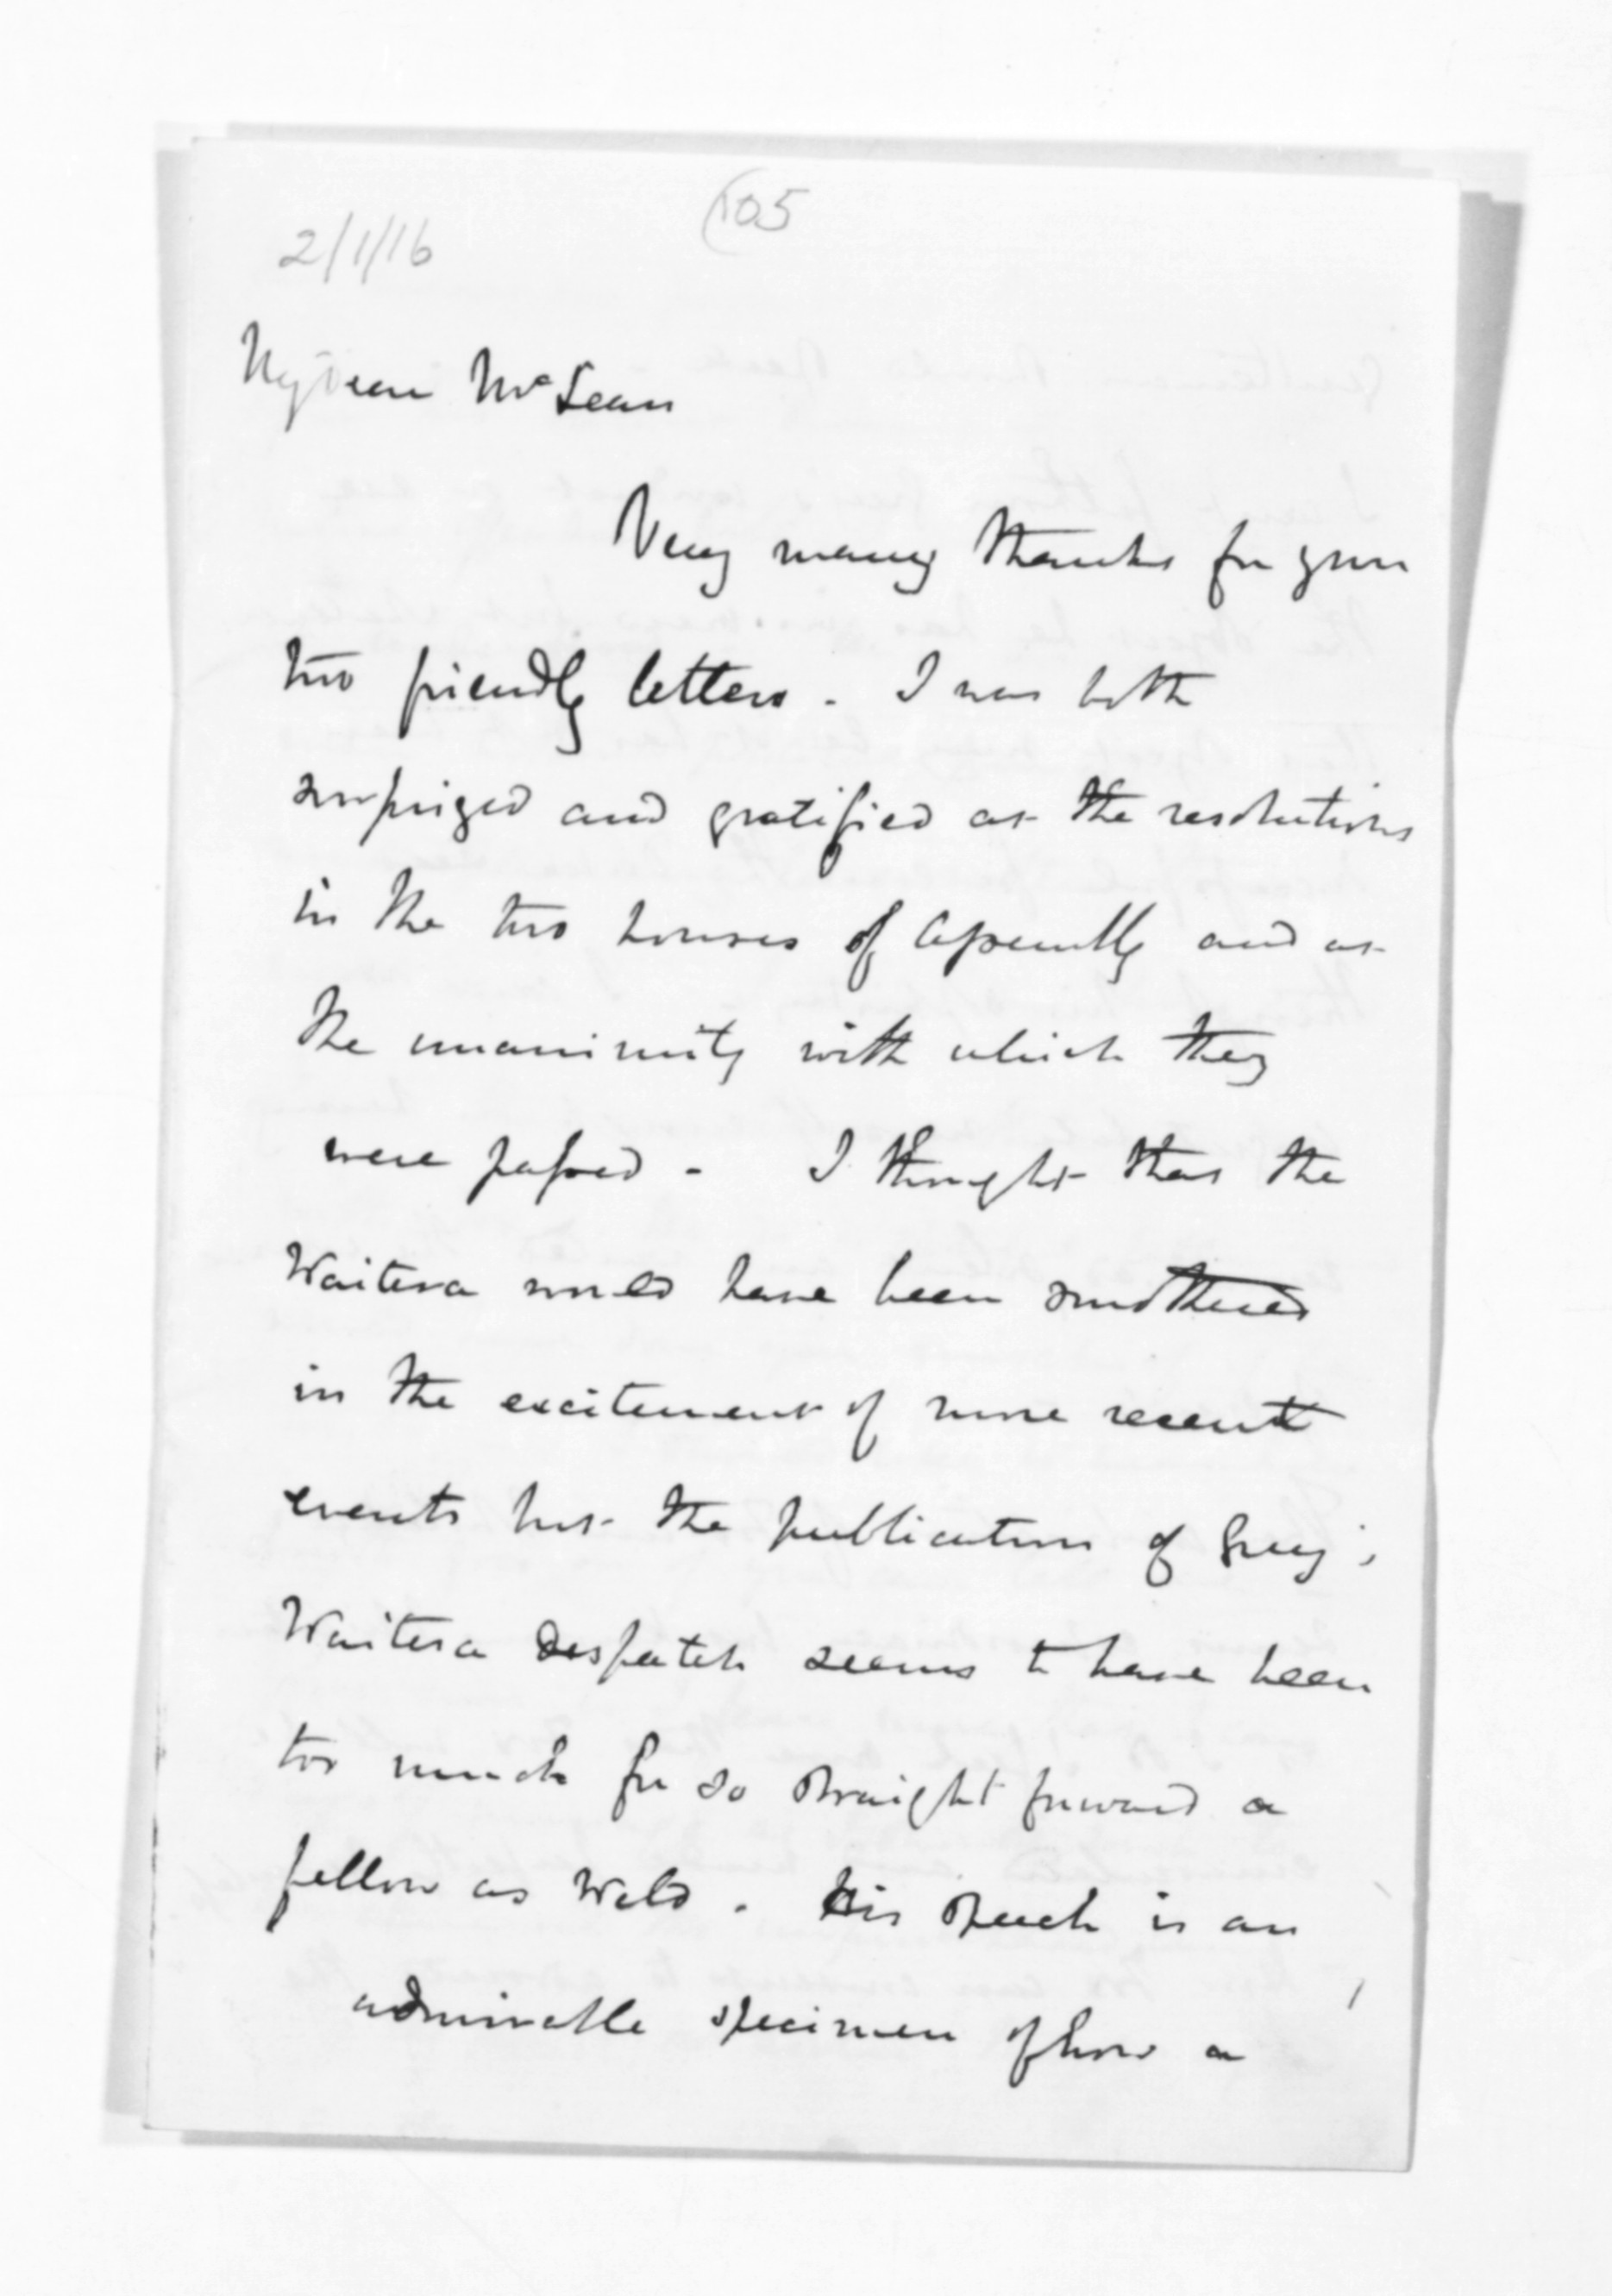 105
2/1/16
My Dear McLean
Very many thanks for your
two friendly letters. I was both
surprized and gratified at the resolutions
in the two houses of Assembly and at
the unanimity with which they
were passed - I thought that the
Waitera would have been smothered
in the excitement of more recent
events but the publication of Grey's
Waitera Despatch seems to have been
too much for so straight forward a
fellow as Weld. His speech is an
admirable specimen of how a